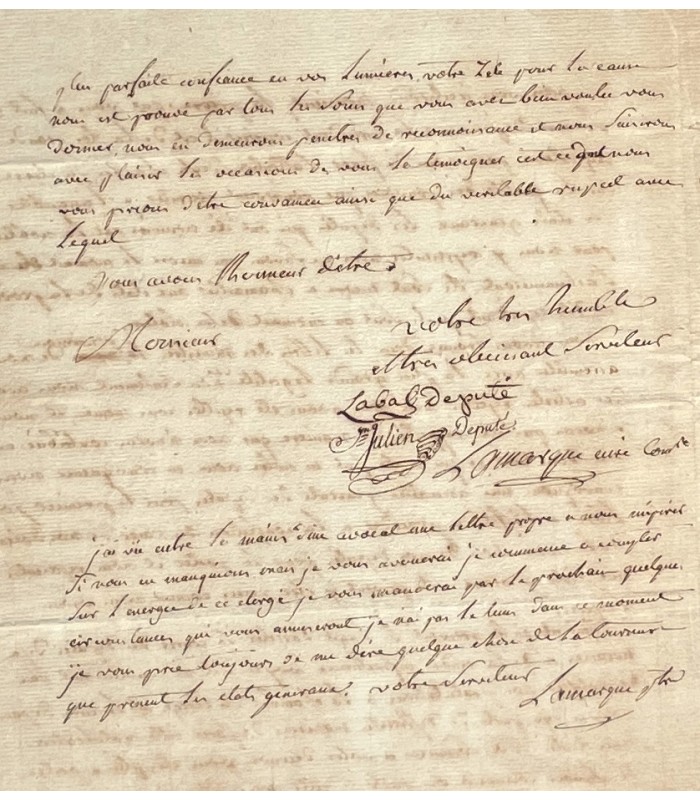 parfaite confiance en vos lumieres, votre Zele pour la cause
nous est prouvé par tous les soins que vous avez bien voulu vous
donner, nous en demeurons penetres de reconnoissance et nous saisirons
avec plaisir les occasions de vous le temoigner c'est ce dont nous
vous prions d'etre convaincu ainsi que du veritable respect avec
lequel
nous avons l'honneur d'etre
Monsieur
votre tres humble
et tres obeissant Serviteur
Labat Deputé
St Julien Deputé
Lamarque curé
j'ai vu entre les mains d'un avocat une lettre propre a nous inspirer
si nous en manquions mais je vous avouerai je commence a compter
sur l'energie de ce clergé je vous manderai par le prochain quelques
circonstances qui vous amuseront je n'ai pas le tems dans ce moment
je vous prie toujours de me dire quelque chose de la tournure
que prenent les etats generaux. votre Serviteur
Lamarque ptre